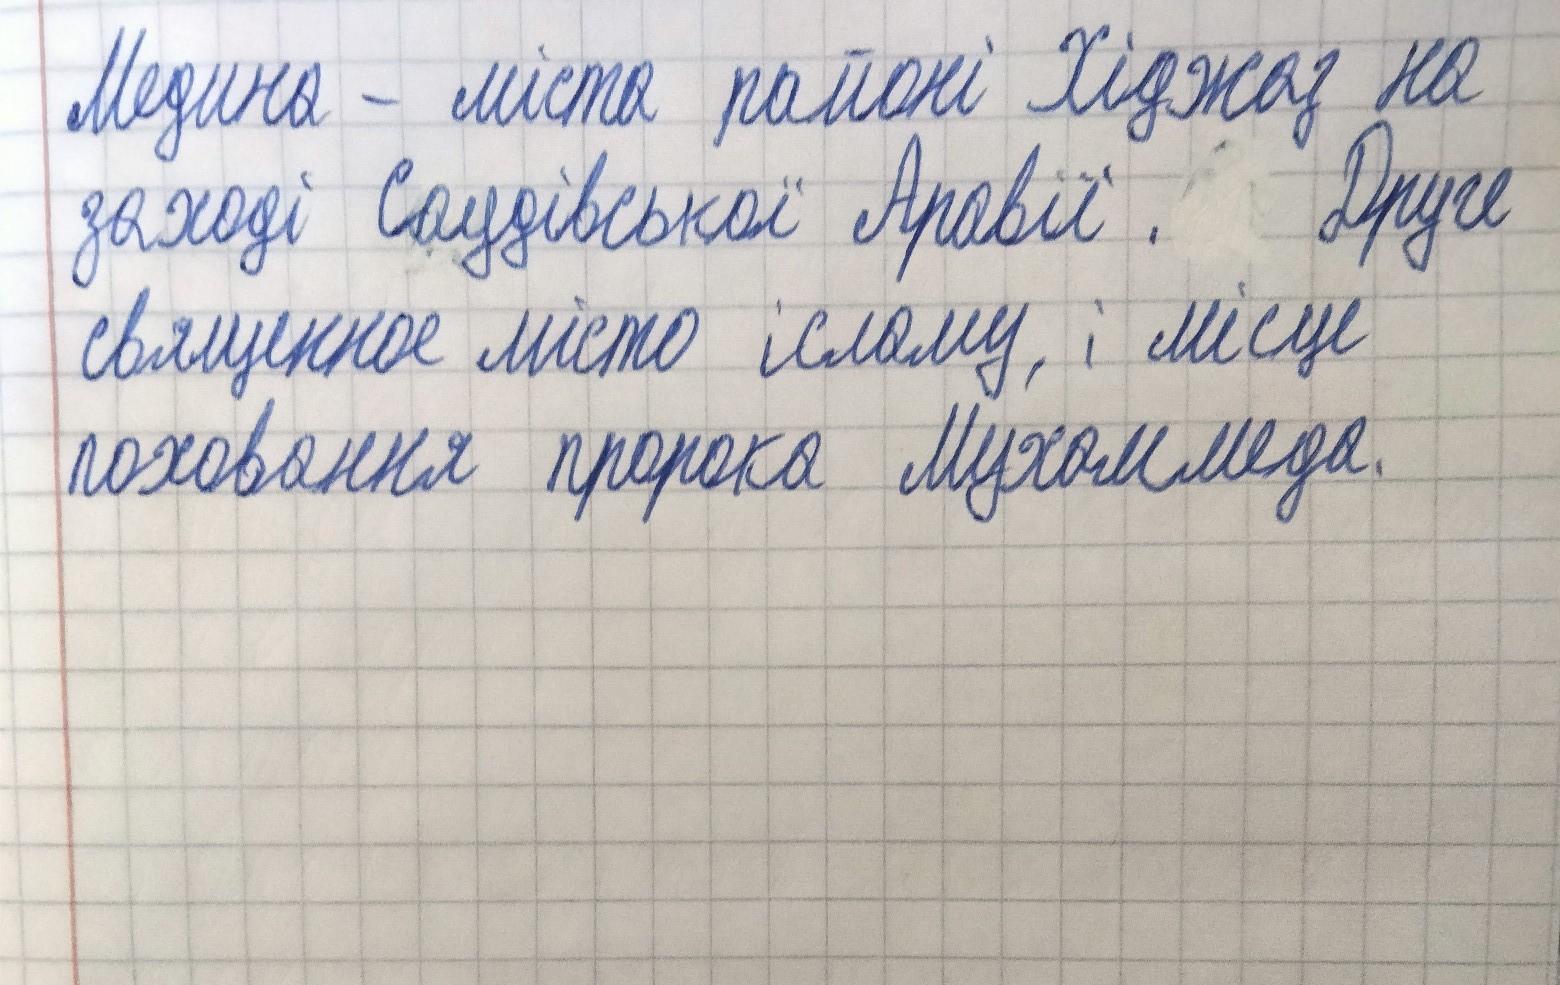 Медина – міста районі Хіджаз на
заході Саудівської Аравії. Друге
священное місто ісламу, і місце
поховання пророка Мухаммеда.